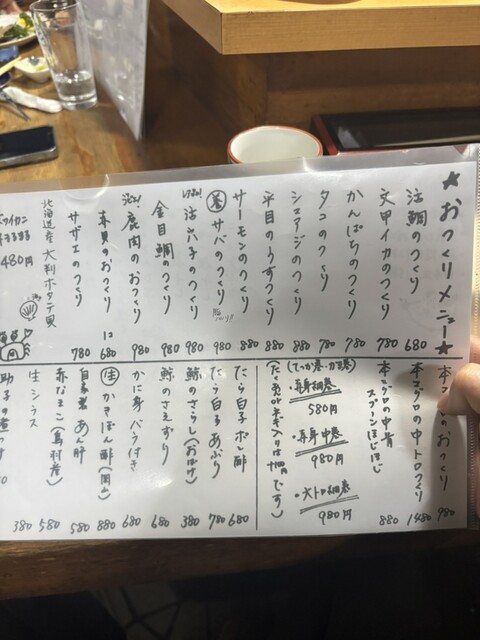 ★おつくりメニュー★
活鯛のつくり 680
文甲イカのつくり 780
かんぱちのつくり 780
タコのつくり 780
シマアジのつくり 880
平目のうすづくり 880
サーモンのつくり 880
サバのつくり 980
活穴子のつくり 980
金目鯛のつくり 980
鹿肉のおつくり 980
本貝のおつくり 1コ 680
サザエのつくり 780
北海道産 大判ホタテ貝
480円
本マグロのおつくり 980
本マグロの中トロつくり 1480
本マグロの中骨 スプーンほじほじ 880
(てっか巻・カッパ巻)
・赤身細巻
580円
・赤身中巻
980円
・大トロ細巻
980円
たら白子ポン酢 680
たら白子あぶり 780
鯨のさらし(おばけ) 380
鯨のさえずり 680
かに身 バラ付き 680
生 かきぽん酢(岡山) 880
自家製 あん肝 580
赤なまこ(鳥羽産) 580
生シラス 380